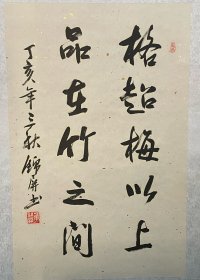 格超梅以上
品在竹之间
丁亥年三秋錦屏书